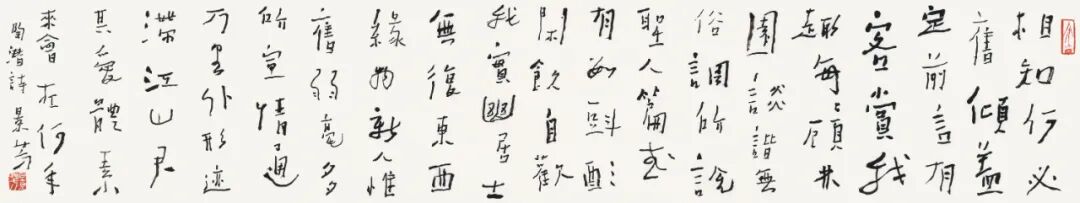 相知何必
舊傾蓋
定前言有
客賞我
趣每〻顧林
園談諧無
俗調所說
聖人篇或
有數㪷
閑飲自歡
我實幽居士
無復東西
緣物新人惟
舊弱毫夕
所宣情通
万里外形迹
滯江山君
其愛體素
來會在何年
陶潛詩 景